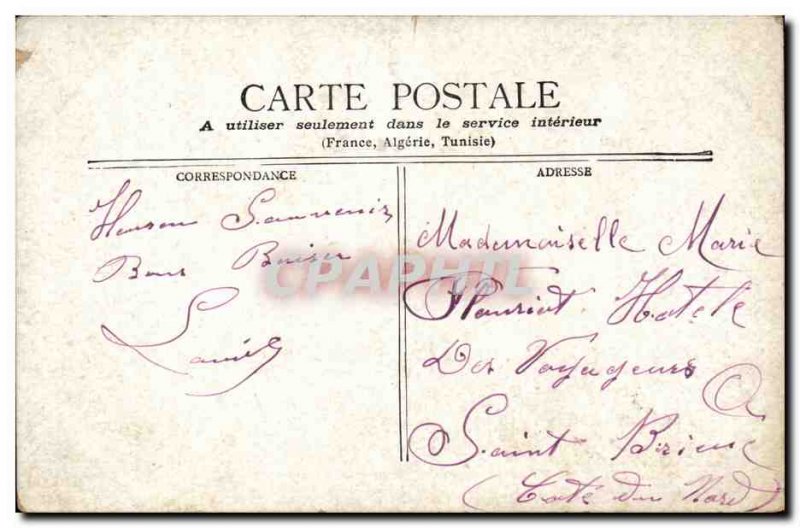 CARTE POSTALE
A utiliser seulement dans le service intérieur
(France, Algérie, Tunisie)
CORRESPONDANCE
Souvenir
Bons Baiser
ADRESSE
Mademoiselle Marie
Fleuriot Hotele
Des Voyageurs
A
Saint Brieuc
(Coté du Nord)
CPAPHIL